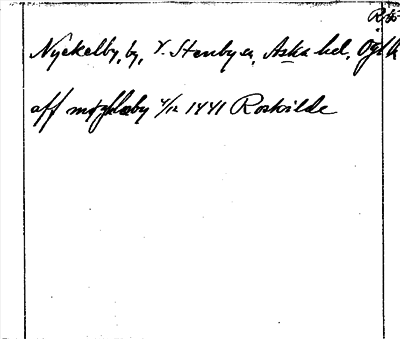 Nyckelby, by, V. Stenby sn, Aska hd, Ögl
aff myklaby 4/12 1441 Roskilde